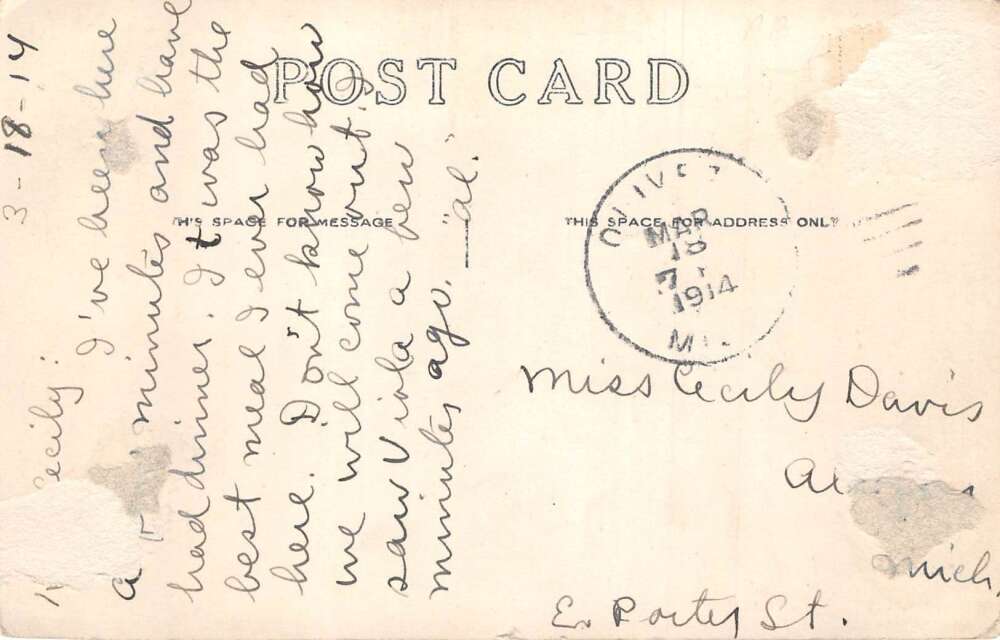 POST CARD
THIS SPACE FOR MESSAGE
THIS SPACE FOR ADDRESS ONLY
OLIVET
MAR
18
1914
3-18-14
I've been here
a minutes and have
had dinner. It was the
best meal I ever had
here. Don't know how
we will come out. I
saw Viola a few
minutes ago. "Al."
Miss Cecily Davis
Mich.
E. Porter St.